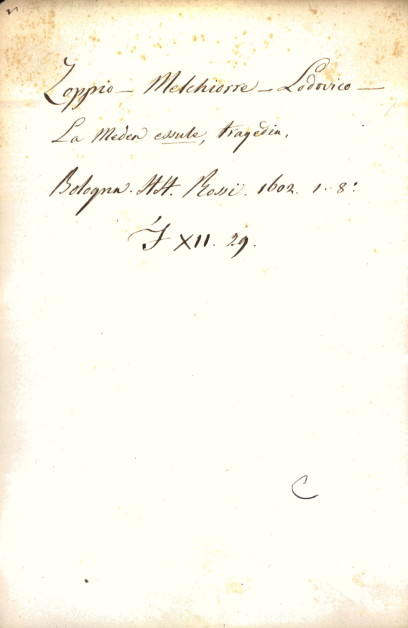 Zoppio – Melchiorre – Lodovico –
La Medea essule, tragedia.
Bologna. HH. Rossi. 1602. 1. 8:
XII. 29.
C